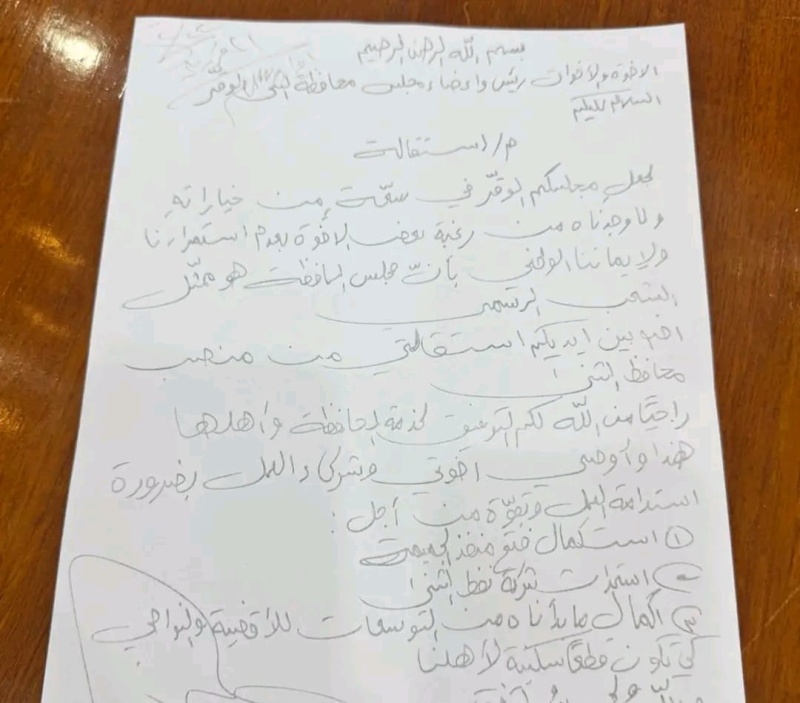 بسم الله الرحمن الرحيم
الاخوة والأخوات رئيس واعضاء مجلس محافظة المثنى الموقر
السلام عليكم
م/ استقالة
لجعل مجلسكم الموقّر في سعّة من خياراته
ولما وجدناه من رغبة بعض الاخوة بعدم استمرارنا
ولايماننا الوطني بأنّ مجلس المحافظة هو ممثّل
الشعب الرسمي
اضع بين ايديكم استقالتي من منصب
محافظ المثنى
راجيًا من الله لكم التوفيق لخدمة المحافظة واهلها
هذا وأوصي اخوتي وشركاء العمل بضرورة
استدامة العمل وبقوّة من أجل :
١ استكمال فتح منفذ الجميمة
٢ استمرار شركة نفط المثنى
٣ اكمال ما بدأناه من التوسعات للأقضية والنواحي
كي تكون قطعًا سكنية لأهلنا